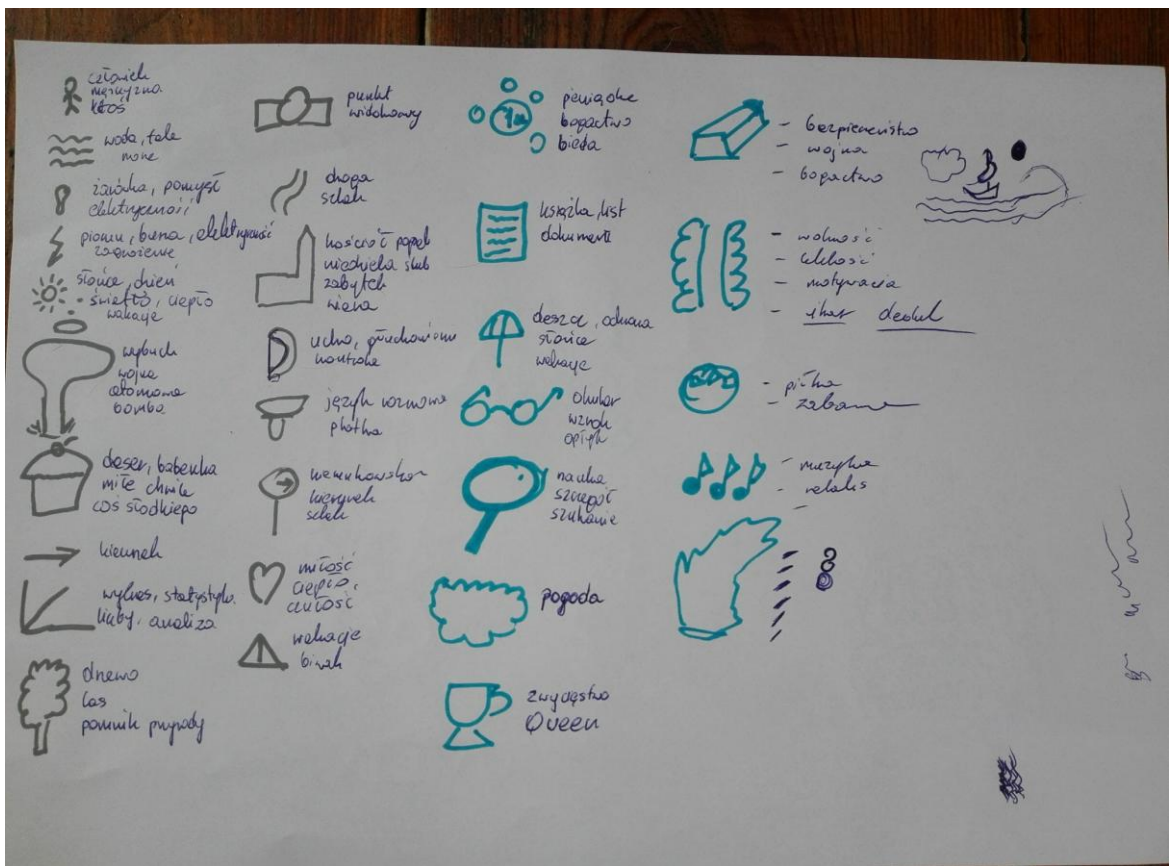 człowiek
mężczyzna
ktoś
woda, fale
morze
żarówka, pomysł
elektryczność
piorun, burza, elektryczność
zagrożenie
słońce, dzień
światło, ciepło
wakacje
wybuch
wojna
atomowa
bomba
deser, babeczka
miłe chwile
coś słodkiego
kierunek
wykres, statystyka
liczby, analiza
drzewo
las
pomnik przyrody
punkt
widokowy
droga
szlak
kościół
niedziela ślub
zabytek
wiara
ucho,
język rozmowa
plotka
kierunek
szlak
miłość
ciepło,
czułość
wakacje
biwak
pieniądze
bogactwo
bieda
książka, list
dokument
deszcz, ochrona
słońce
wakacje
okulary
wzrok
optyk
nauka
szczegół
szukanie
pogoda
zwycięstwo
Queen
- bezpieczeństwo
- wojna
- bogactwo
- wolność
- lekkość
- motywacja
- piłka
- zabawa
- muzyka
- relaks